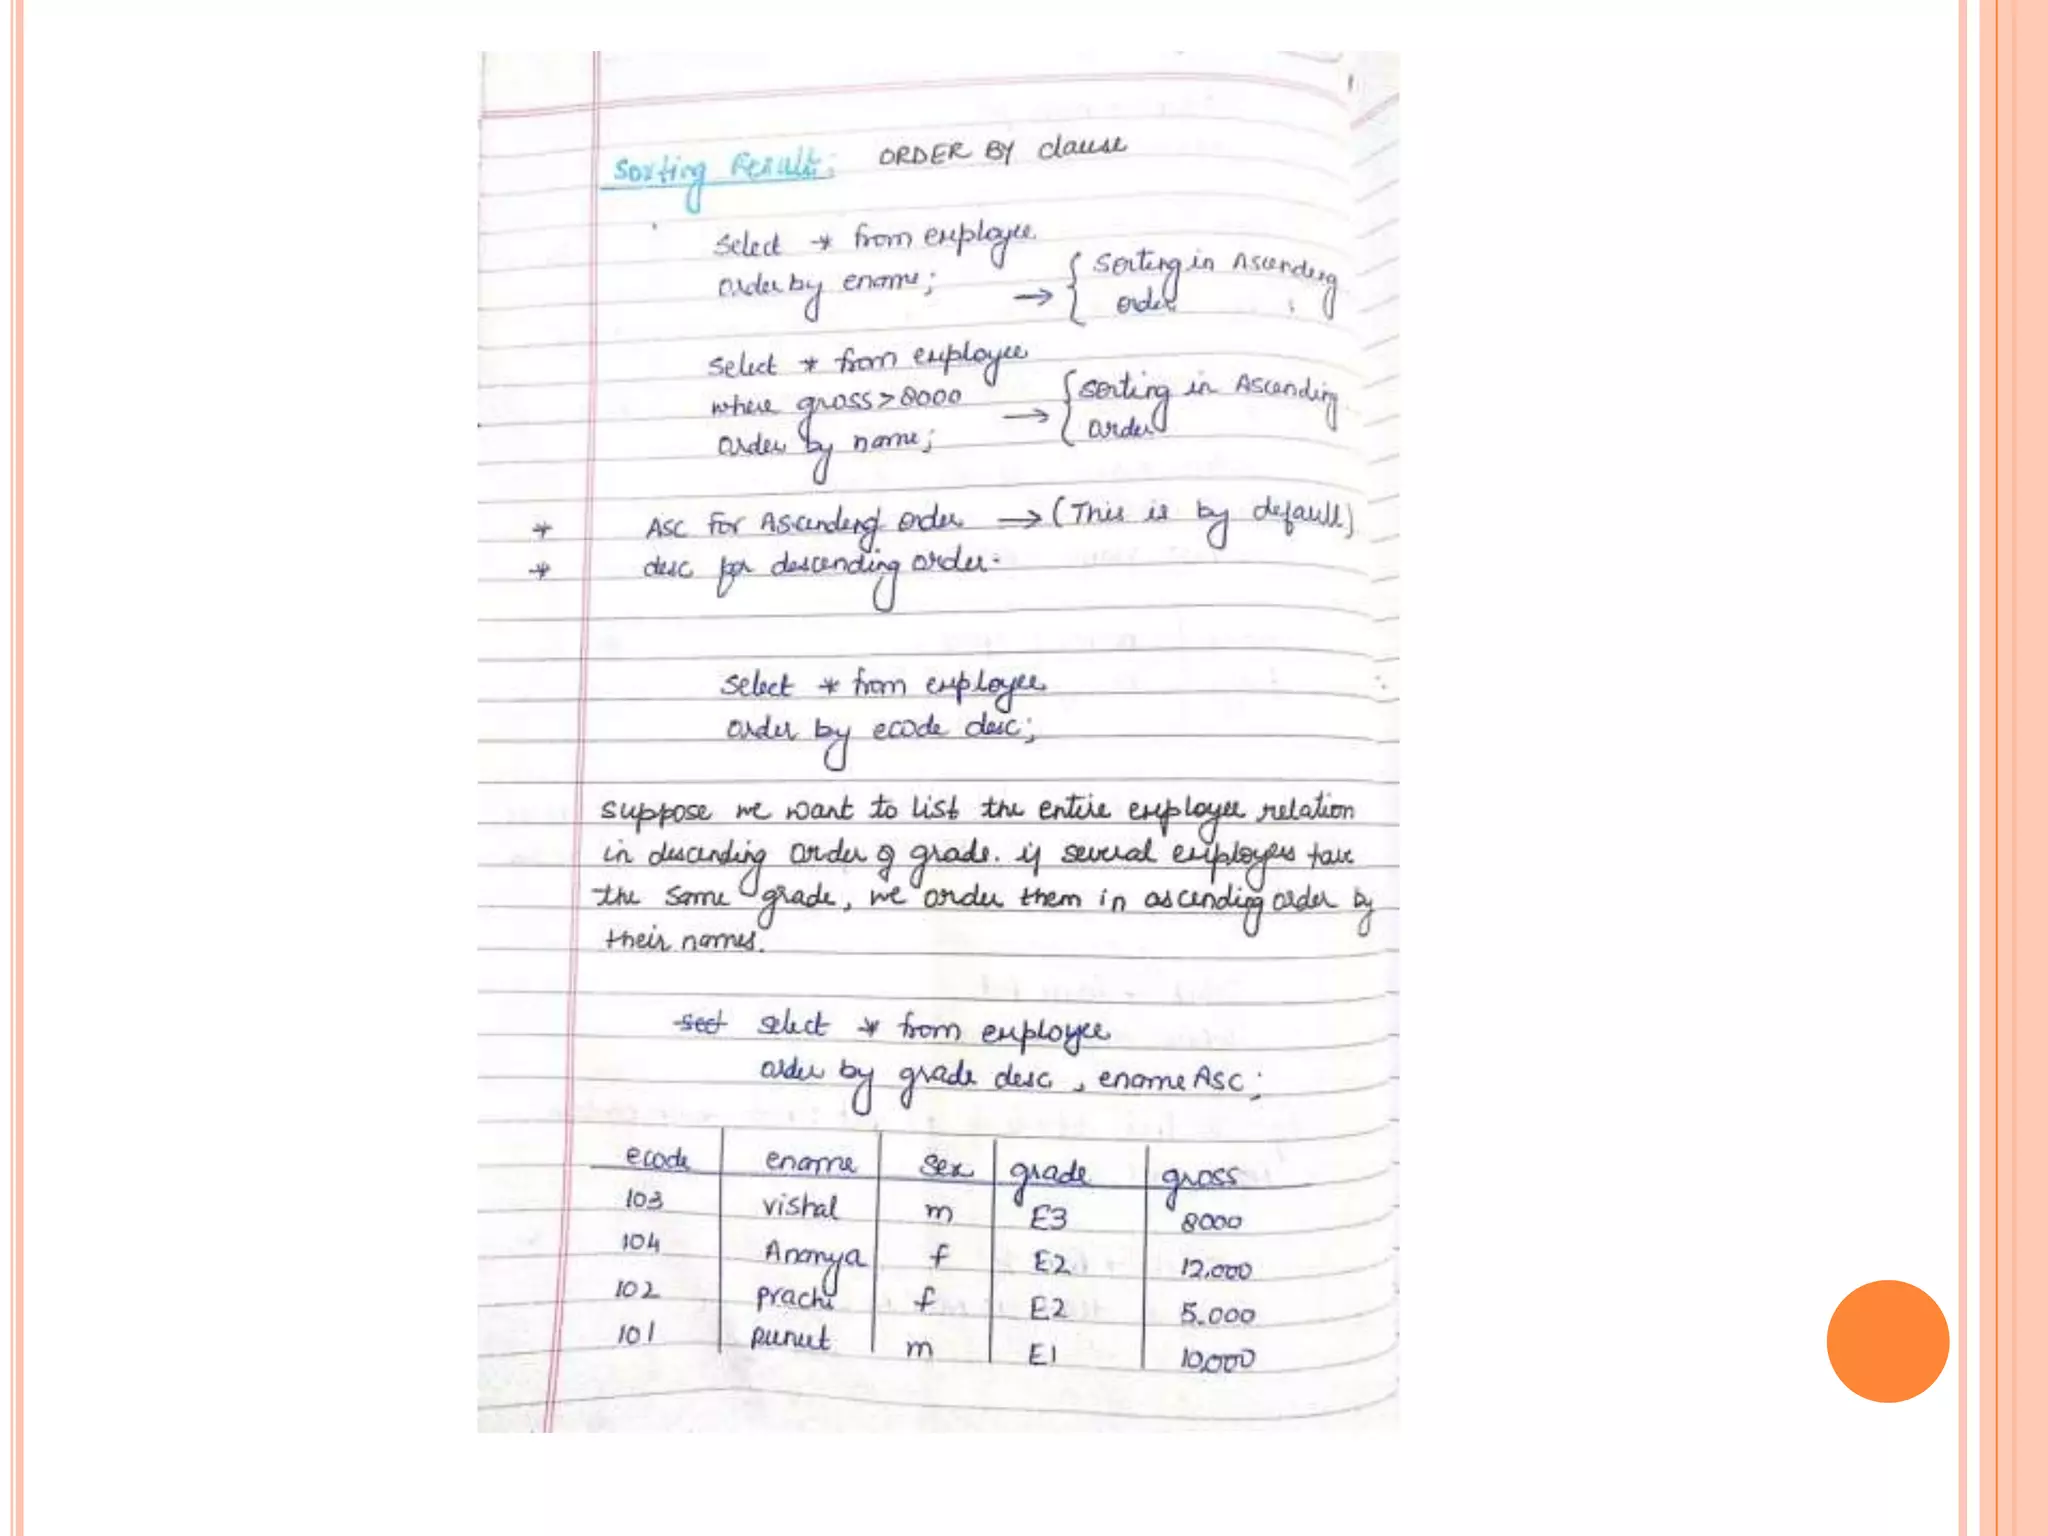 Sorting Result: ORDER BY clause
Select * from employee
order by ename; → { Sorting in Ascending order
Select * from employee
where gross > 8000 → { Sorting in Ascending order
order by name;
* Asc For Ascending order → (This is by default)
* desc for descending order.
Select * from employee
order by ecode desc;
suppose we want to list the entire employee relation
in descending order of grade. if several employees have
the same grade, we order them in ascending order by
their names.
select * from employee
order by grade desc, ename Asc;
ecode ename sex grade gross
103 vishal m E3 8000
104 Ananya f E2 12,000
102 prachi f E2 5.000
101 puneet m E1 10,000